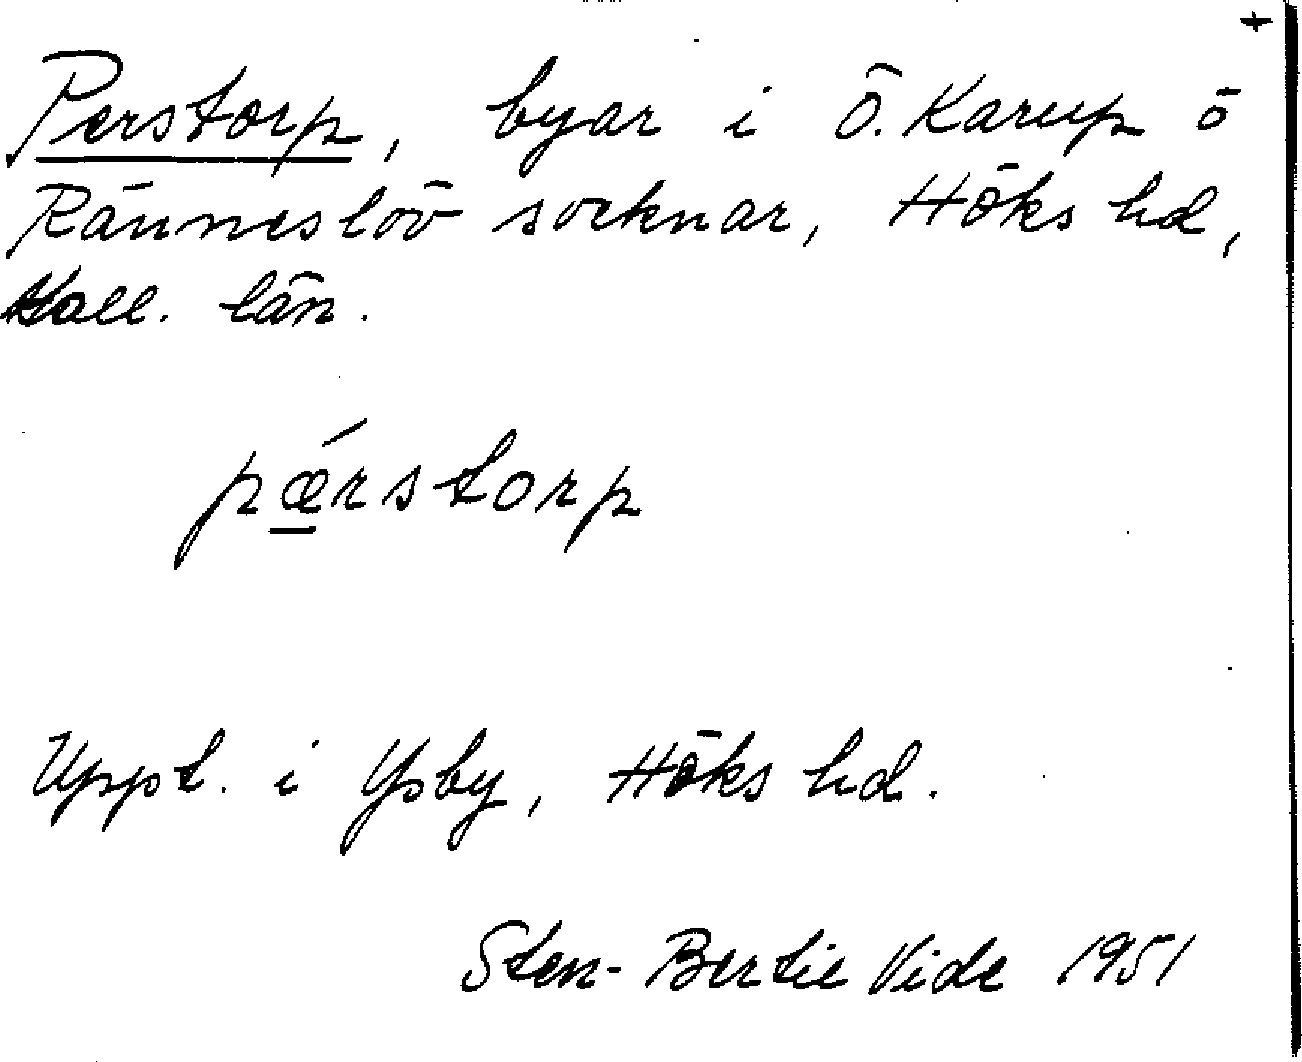 +
Perstorp, byar i Ö. Karup o
Ränneslöv socknar, Höks hd,
Hall. län.
pǽrstorp
Uppt. i Ysby, Höks hd.
Sten-Bertil Vide 1951